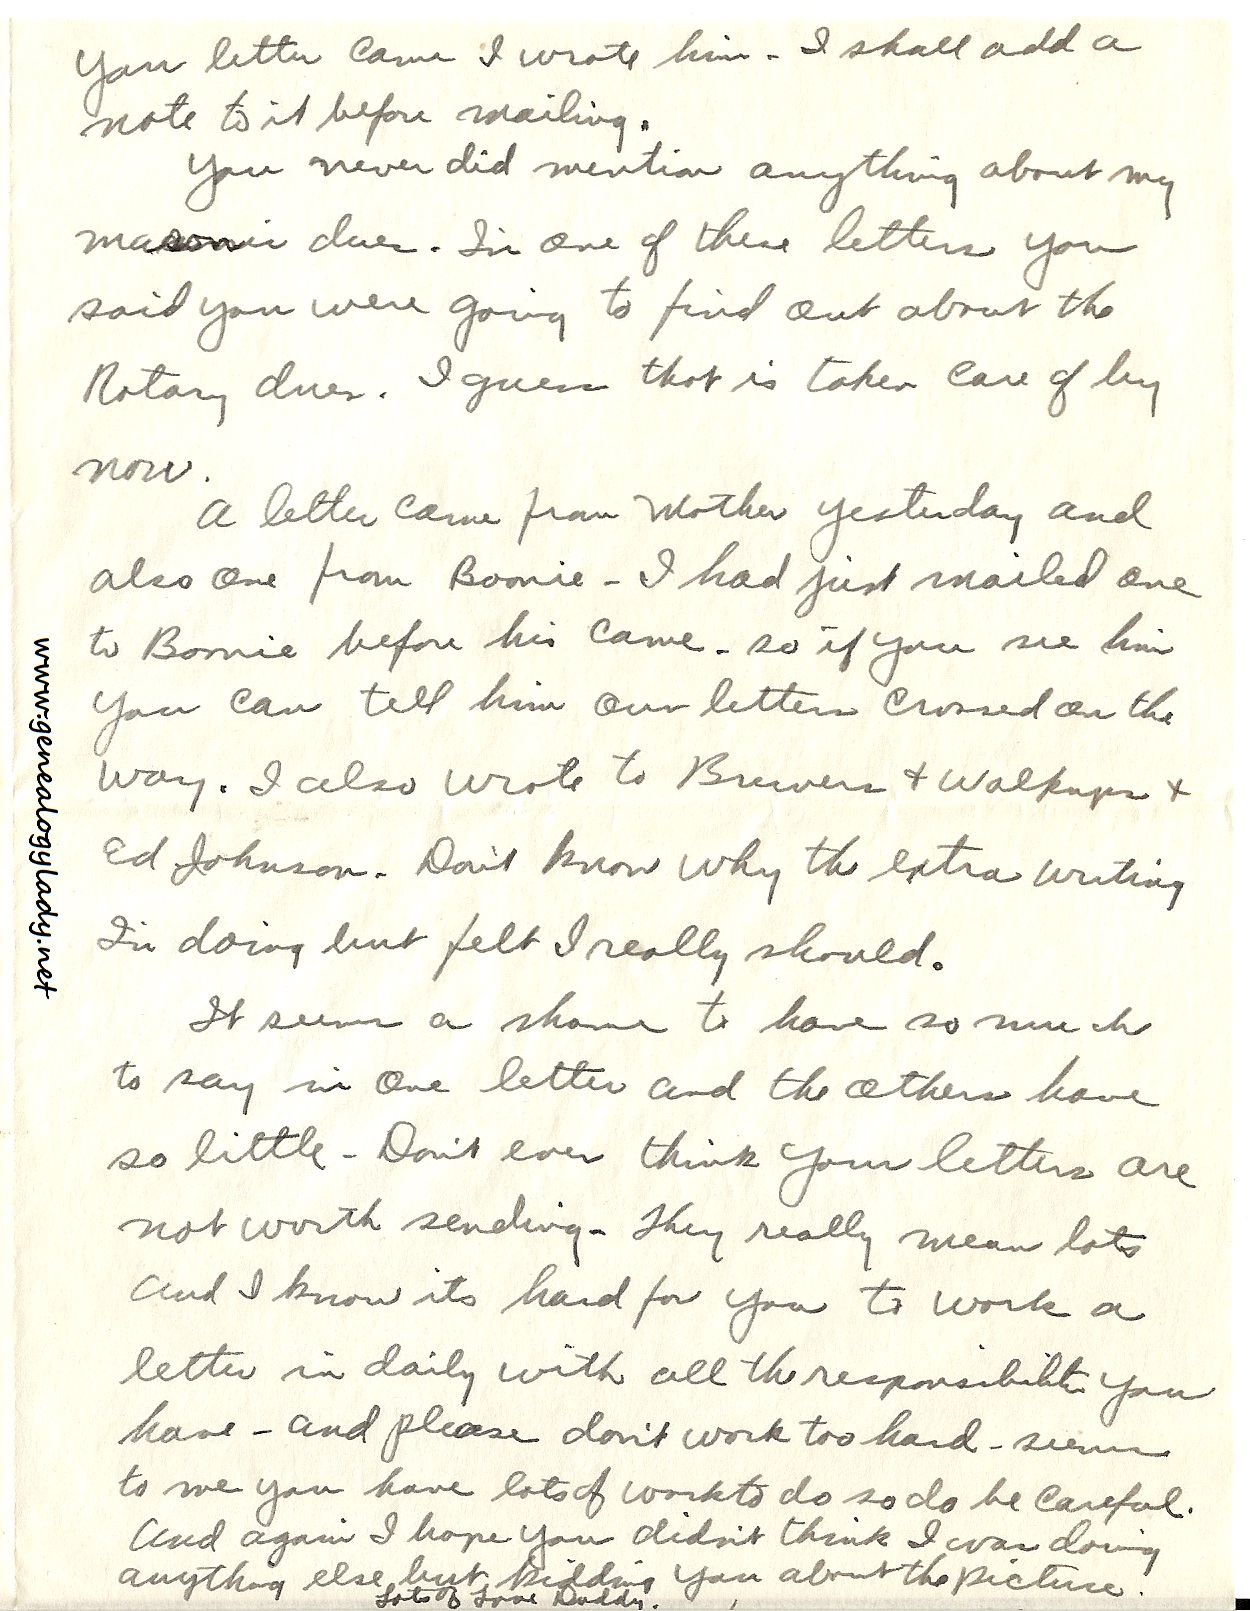 Your letter came I wrote him - I shall add a
note to it before mailing.
You never did mention anything about my
masonic dues. In one of these letters you
said you were going to find out about the
Rotary dues. I guess that is taken care of by
now.
A letter came from Mother yesterday and
also one from Boonie - I had just mailed one
to Boonie before his came - so if you see him
you can tell him our letters crossed on the
way. I also wrote to Brewers + Walkups +
Ed Johnson. Don't know why the extra writing
I'm doing but felt I really should.
It seems a shame to have so much
to say in one letter and the others have
so little - Don't ever think your letters are
not worth sending - They really mean lots
and I know its hard for you to work a
letter in daily with all the responsibility you
have - and please don't work too hard - seems
to me you have lots of work to do so do be careful.
And again I hope you didn't think I was doing
anything else but kidding you about the picture.
Lots of Love Daddy.
www.genealogylady.net